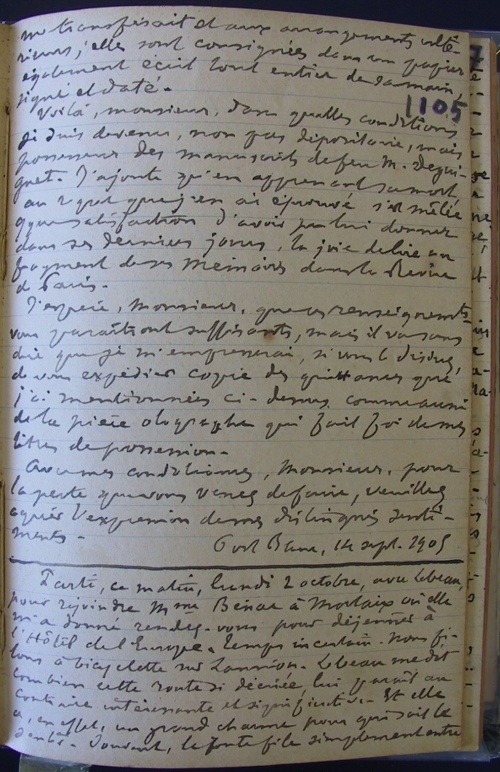 me transférait et aux arrangements ulté-
rieurs, elles sont consignées dans un papier
également écrit tout entier de sa main,
signé et daté.
1105
Voilà, monsieur, dans quelles conditions
je suis devenu, non pas dépositaire, mais
possesseur des manuscrits de feu M. Dequi-
gnet. J'ajoute qu'en apprenant sa mort
au regret que j'en ai éprouvé s'est mêlée
quelque satisfaction d'avoir pu lui donner
dans ses derniers jours, la joie de lire un
fragment de ses Mémoires dans la Revue
de Paris.
J'espère, Monsieur, que ces renseignements
vous paraîtront suffisants, mais il va sans
dire que je m'empresserai, si vous le désirez,
de vous expédier copie des quittances que
j'ai mentionnées ci-dessus comme aussi
de la pièce olographe qui fait foi de mes
titres de possession.
Avec mes condoléances, Monsieur, pour
la perte que vous venez de faire, veuillez
agréer l'expression de mes distingués senti-
ments.
Port Blanc, 14 sept. 1905
Parti, ce matin, lundi 2 octobre, avec Lebeau,
pour rejoindre Mme Benac à Morlaix où elle
m'a donné rendez-vous pour déjeuner à
l'Hôtel de l'Europe. Temps incertain. Nous fi-
lons à bicyclette sur Lannion. Lebeau me dit
combien cette route si décriée, lui paraît au
contraire intéressante et significative. Et elle
a, en effet, un grand charme pour qui sait le
sentir. Souvent, la route file simplement entre